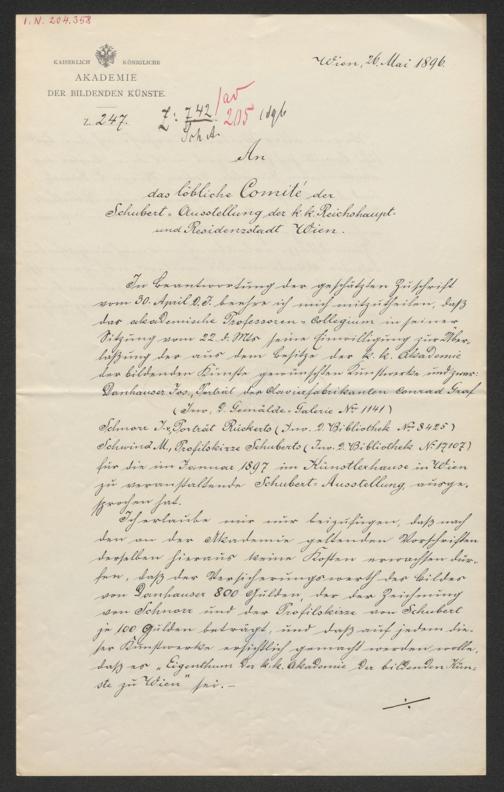 I.N. 204.358
KAISERLICH KÖNIGLICHE
AKADEMIE
DER BILDENDEN KÜNSTE.
Z. 247.
Z: 742/Sch.A.
av
205 1896
Wien, 26. Mai 1896.
An
das löbliche Comité der
Schubert-Ausstellung der k.k. Reichshaupt-
und Residenzstadt Wien.
In Beantwortung der geschätzten Zuschrift
vom 30. April d. J. beehre ich mich mitzutheilen, daß
das akademische Professoren-Collegium in seiner
Sitzung vom 22. d. Mts seine Einwilligung zur Über-
laßung der aus dem Besitze der k. k. Akademie
der bildenden Künste gewünschten Kunstwerke und zwar:
Danhauser Jos., Porträt des Clavierfabrikanten Conrad Graf
(Inv. d. Gemälde-Galerie No 1141)
Schnorr Porträt Rückerts (Inv. d. Bibliothek No 8425)
Schwind M., Profilskizze Schuberts (Inv. d. Bibliothek No 17107)
für die im Januar 1897 im Künstlerhause in Wien
zu veranstaltende Schubert-Ausstellung, ausge-
sprochen hat.
Ich erlaube mir nur beizufügen, daß nach
den an der Akademie geltenden Vorschriften
derselben hieraus keine Kosten erwachsen dür-
fen, daß der Versicherungswerth des Bildes
von Danhauser 800 Gulden, der der Zeichnung
von Schnorr und der Profilskizze von Schubert
je 100 Gulden beträgt, und daß auf jedem die-
ser Kunstwerke ersichtlich gemacht werden wolle,
daß es "Eigenthum der k.k. Akademie der bildenden Kün-
ste zu Wien" sei.-